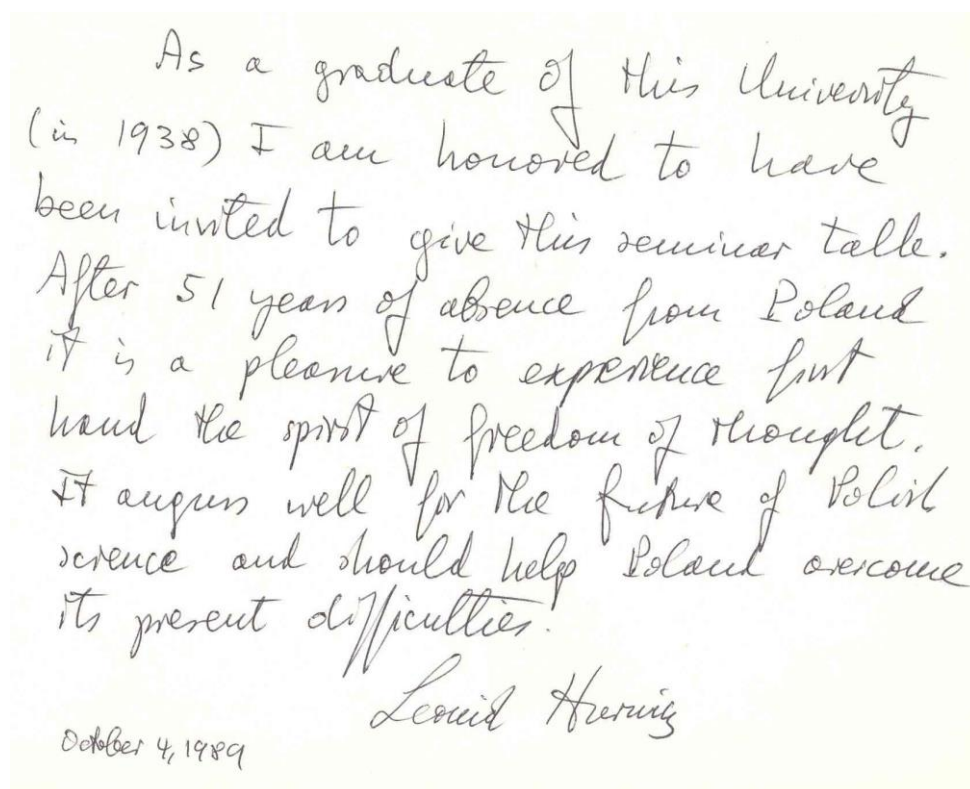 As a graduate of this University
(in 1938) I am honored to have
been invited to give this seminar talk.
After 51 years of absence from Poland
it is a pleasure to experience first
hand the spirit of freedom of thought.
It augurs well for the future of Polish
science and should help Poland overcome
its present difficulties.
Leonid Hurwicz
October 4, 1989